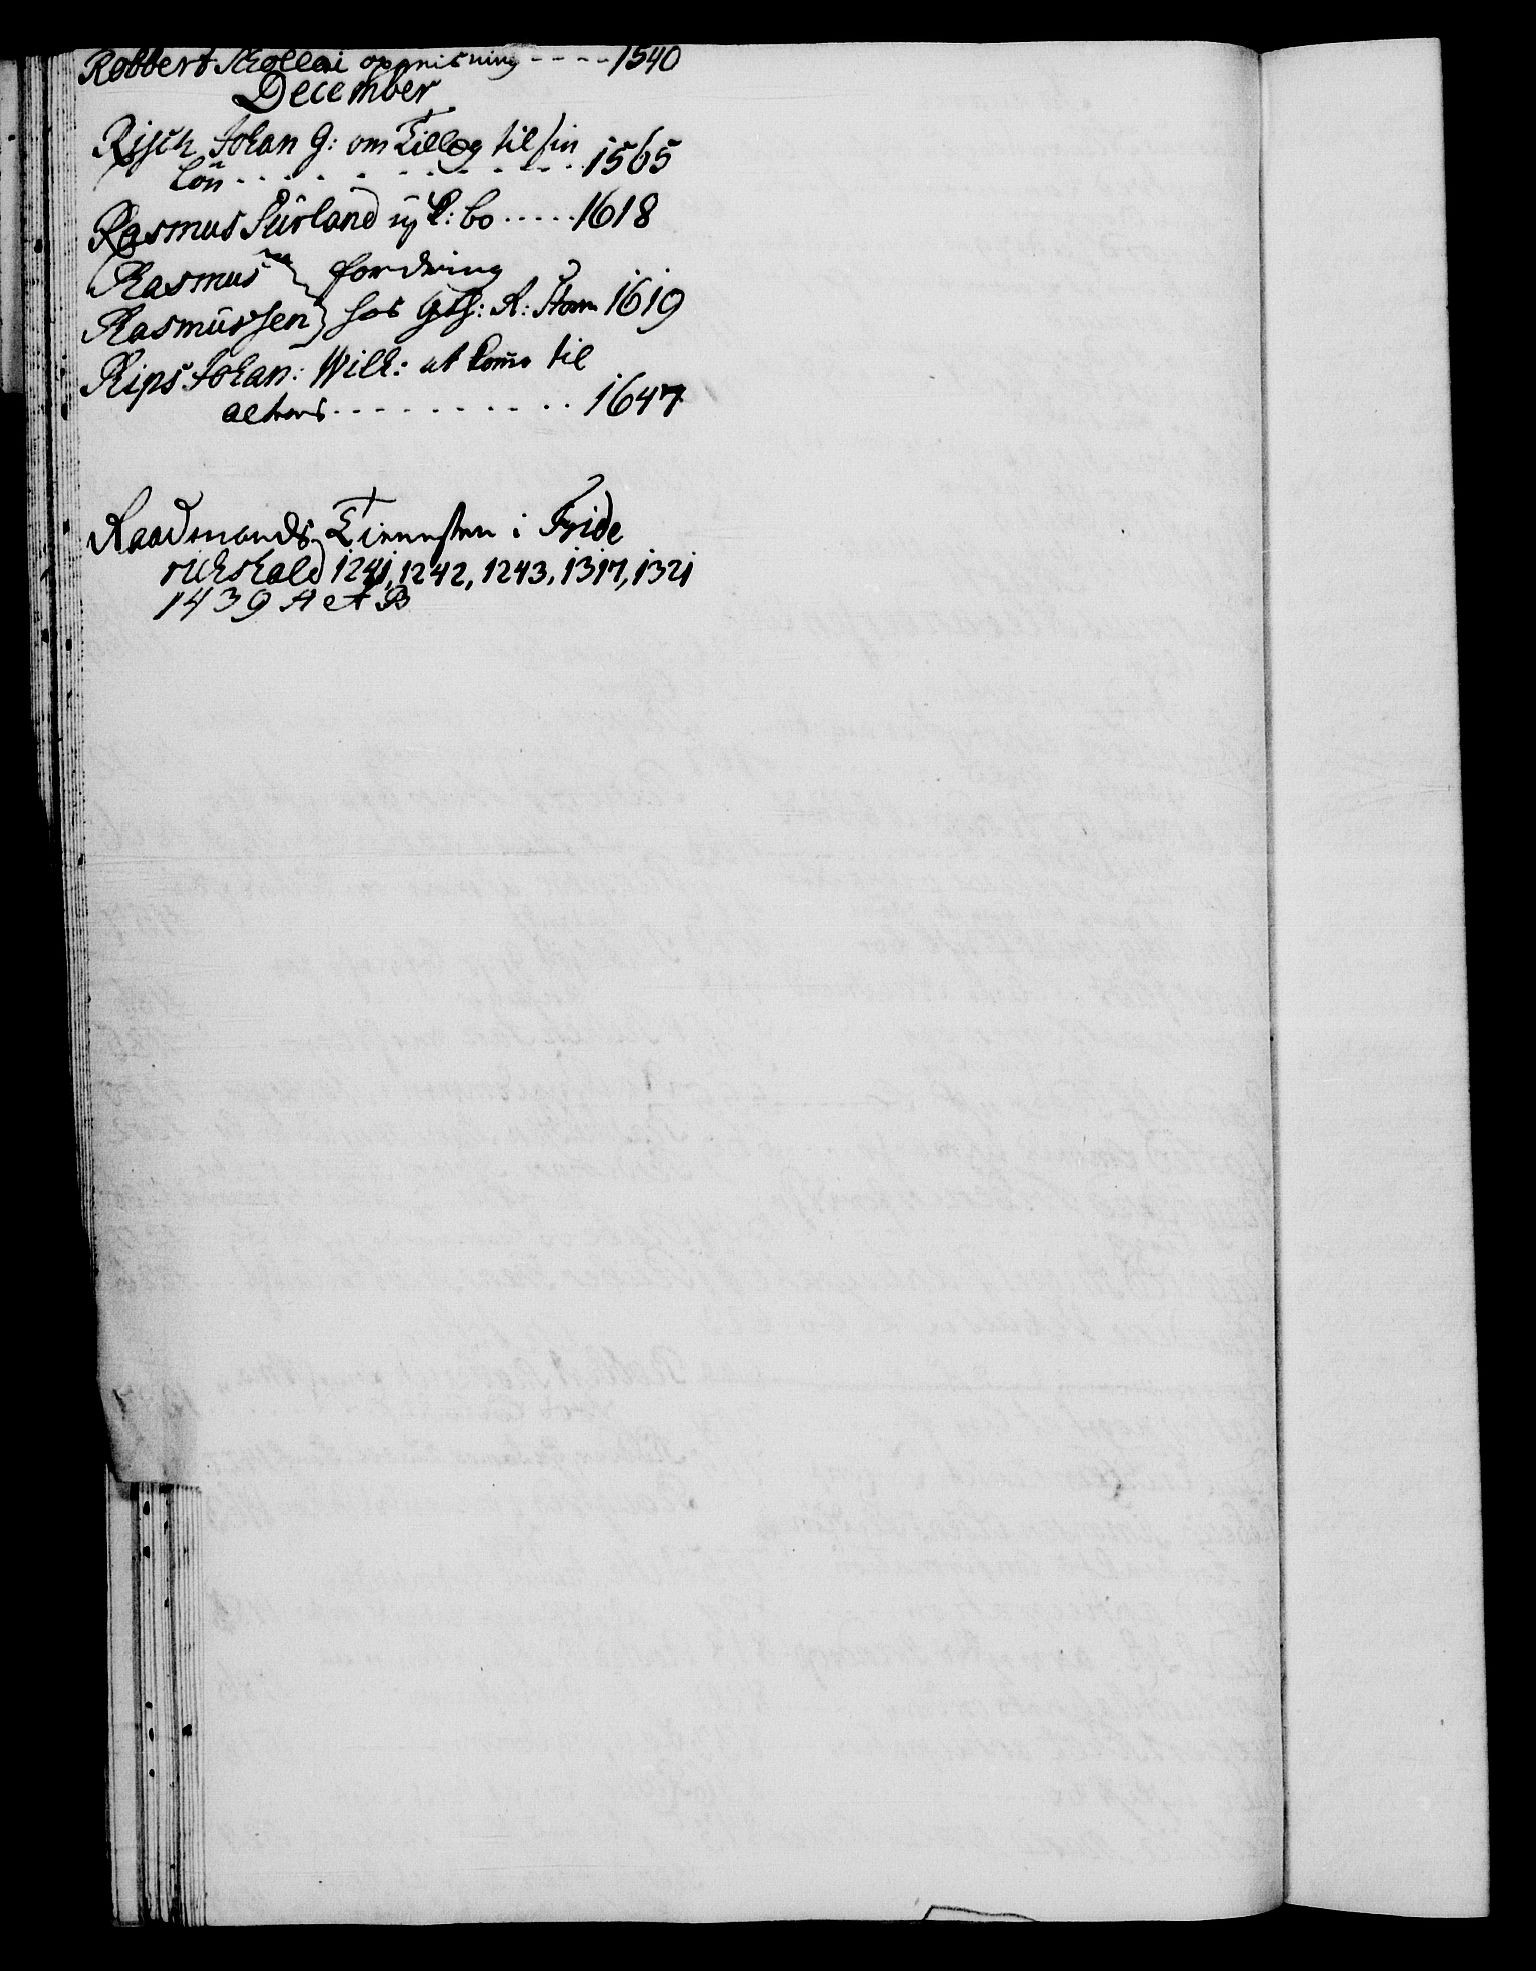 Robbert Skollai opreisning - - - - 1540
December
Risch Johan G: om Tillæg til sin
Lön - - - - - - - - - 1565
Rasmus Sürland ÿ L: bo - - - - - 1618
Rasmus fordring
Rasmüssen hos Gth: R: Stam 1619
Rips Johan: Wilh: at komme til
alters - - - - - - - - - - 1647
Raadmands Tienesten i Fride
richshald 1241, 1242, 1243, 1317, 1321
1439 A et B